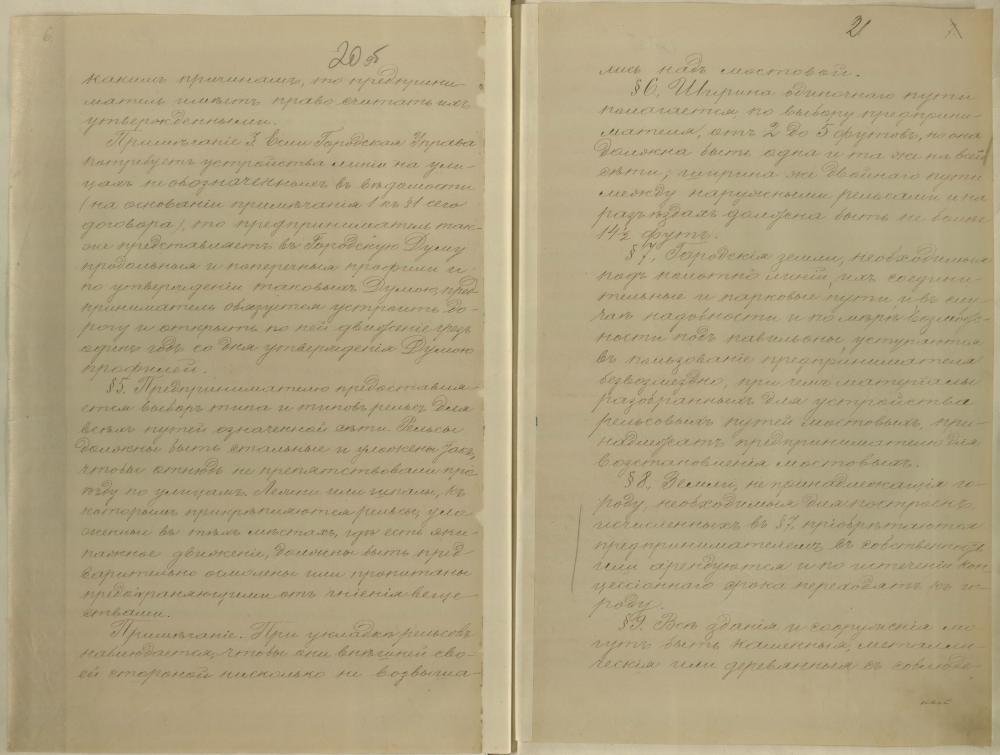 20 об
какимъ причинамъ, то предприни-
матель имѣетъ право считать ихъ
утвержденными.
Примѣчаніе 3. Если Городская Управа
потребуетъ устройства линіи на ули-
цахъ не обозначенныхъ въ вѣдомости
(на основаніи примѣчанія 1 къ §1 сего
договора), то предприниматель так-
же представляетъ въ Городскую Думу
продольныя и поперечныя профили и
по утвержденіи таковыхъ Думою, пред-
приниматель обязуется устроить до-
рогу и открыть по ней движеніе чрезъ
одинъ годъ со дня утвержденія Думою
профилей.
§5. Предпринимателю предоставля-
ется выборъ типа и типовъ рельсъ для
всѣхъ путей означенной сѣти. Рельсы
должны быть стальные и уложены такъ,
чтобы отнюдь не препятствовали про-
ѣзду по улицамъ. Лежни или шпалы, къ
которымъ прикрѣпляются рельсы, уло-
женные въ тѣхъ мѣстахъ, гдѣ есть эки-
пажное движеніе, должны быть пред-
варительно осмолены или пропитаны
предохраняющими отъ гніенія веще-
ствами.
Примѣчаніе. При укладкѣ рельсовъ
наблюдается, чтобы они внѣшней сво-
ей стороной нисколько не возвыша-
21
лись надъ мостовой.
§6. Ширина одиночнаго пути
полагается, по выбору предприни-
мателя, отъ 2 до 5 футовъ, но она
должна быть одна и та же на всей
сѣти; ширина же двойнаго пути
между наружными рельсами и на
разъѣздахъ должна быть не болѣе
14½ футъ.
§7. Городскія земли, необходимыя
подъ полотно линій, ихъ соедини-
тельные и парковые пути и въ слу-
чаѣ надобности и по мѣрѣ возмож-
ности подъ павильоны уступаются
въ пользованіе предпринимателя
безвозмездно, при чемъ матеріалы
разобранныхъ для устройства
рельсовыхъ путей мостовыхъ, при-
надлежатъ предпринимателю для
возстановленія мостовыхъ.
§8. Земли, не принадлежащія го-
роду, необходимыя для построекъ,
исчисленныхъ въ §7, пріобрѣтаются
предпринимателемъ въ собственность
или арендуются и по истеченіи кон-
цессіоннаго срока переходятъ къ го-
роду.
§9. Всѣ зданія и сооруженія мо-
гутъ быть каменныя, металли-
ческія или деревянныя съ соблюде-